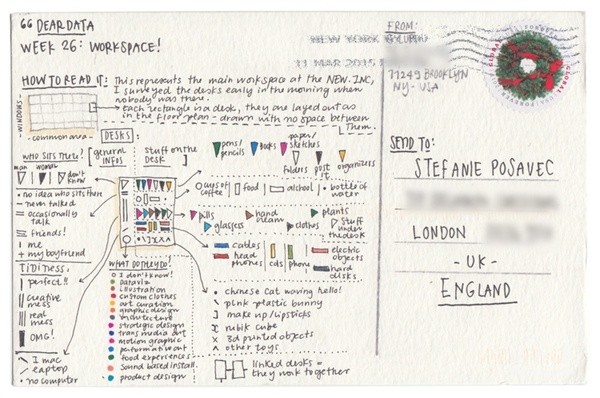 DEAR DATA
WEEK 26: WORKSPACE!
HOW TO READ IT: This represents the main workspace at the NEW.INC,
I surveyed the desks early in the morning when
nobody was there.
Each rectangle is a desk, they are layed out as
in the floor plan - drawn with no space between
them.
WINDOWS
common area
DESKS:
WHO SITS THERE?
general
infos
stuff on the
desk
man woman don't know
• no idea who sits there
- never talked
= occasionally
talk
≡ friends!
| me
+ my boyfriend
TIDINESS:
perfect!!
creative
mess
real
mess
OMG!
\ I mac
/ laptop
• no computer
pens/
pencils
books
paper/
sketches
folders
post
it
organizers
cups of
coffee
food
alcohol
bottle of
water
pills
hand
cream
plants
glasses
clothes
stuff
under
the desk
cables
head
phones
cds
phone
electric
objects
hard
disks
WHAT DO THEY DO?
I don't know!
dataviz
illustration
custom clothes
art curation
graphic design
architecture
strategic design
trans media art
motion graphic
performative art
food experiences
sound based install.
product design
• chinese cat waving hello!
\ pink plastic bunny
] make up/lipsticks
x rubik cube
x 3d printed objects
^ other toys
linked desks =
they work together
FROM:
11249 BROOKLYN
NY - USA
NEW YORK
11 MAR 2015
GLOBAL
FOREVER
SEND TO:
STEFANIE POSAVEC
LONDON
- UK -
ENGLAND